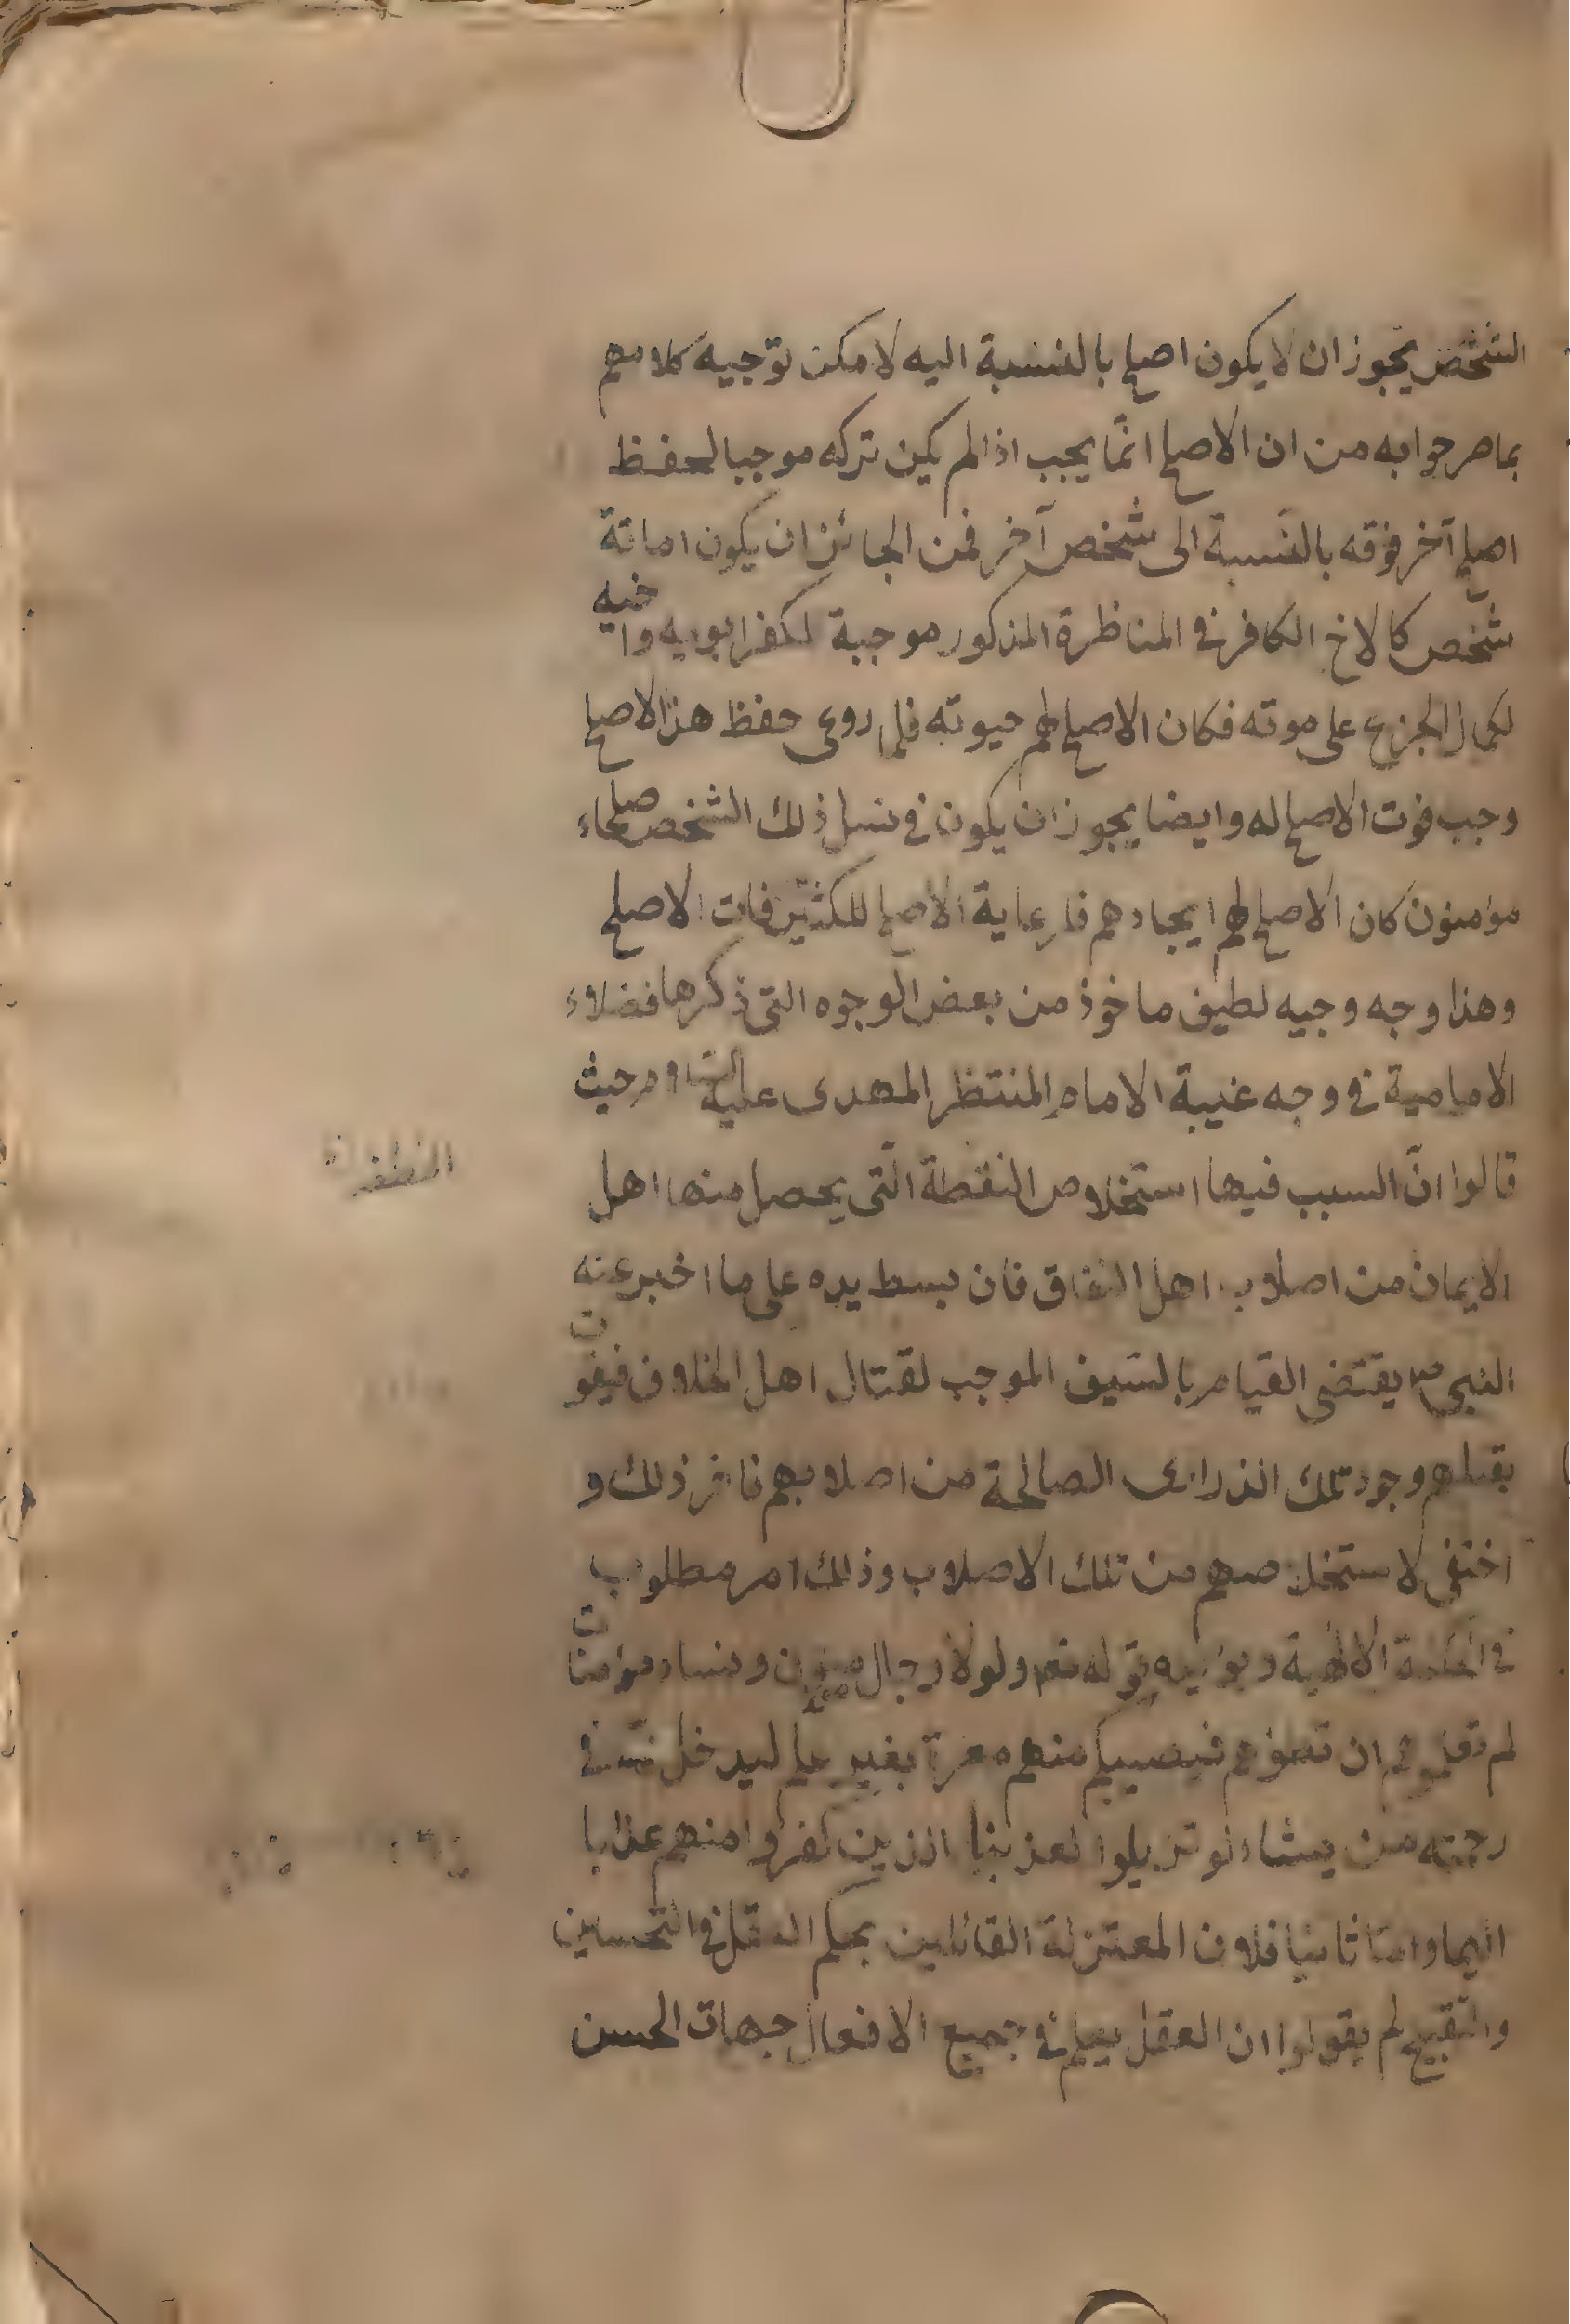 الشخص يجوز ان لا يكون اصلح بالنسبة اليه لامكن توجيه كلامهم
بما هر جوابه من ان الاصلح انما يجب اذا لم يكن تركه موجبا لحفظ
اصلح آخر فوقه بالنسبة الى شخص آخر فمن الجائز ان يكون اماتة
شخص كالاخ الكافر في المناظرة المذكور موجبة لكفر ابويه واخيه
لكمال الجزع على موته فكان الاصلح لهم حيوته فلما روعى حفظ هذا الاصلح
وجب فوت الاصلح له وايضا يجوز ان يكون في نسل ذلك الشخص صلحاء
مؤمنون كان الاصلح لهم ايجادهم فلرعاية الاصلح للكثير فات الاصلح
وهذا وجه وجيه لطيف ماخوذ من بعض الوجوه التى ذكرها فضلاء
الامامية في وجه غيبة الامام المنتظر المهدى عليه السلام حيث
قالوا انّ السبب فيها استخلاص النقطة الّتى يحصل منها اهل
النطفة
الايمان من اصلاب اهل النفاق فان بسط يده على ما اخبر عنه
النبى ص يقتضى القيام بالسّيف الموجب لقتال اهل الخلاف فيفوت
بقتلهم وجود تلك الذرارى الصالحة من اصلابهم فاخر ذلك و
اختفى لاستخلاصهم من تلك الاصلاب وذلك امر مطلوب
في الحكمة الالهية ويؤيده قوله تعم ولولا رجال مؤمنون ونساء مؤمنات
لم تعلموهم ان تطؤهم فتصيبكم منهم معرة بغير علم ليدخل الله في
رحمته من يشاء لو تزيلوا لعذبنا الذين كفروا منهم عذابا
اليما وامّا ثانيا فلان المعتزلة القائلين بحكم العقل في التحسين
والتقبيح لم يقولوا ان العقل يعلم في جميع الافعال جهات الحسن